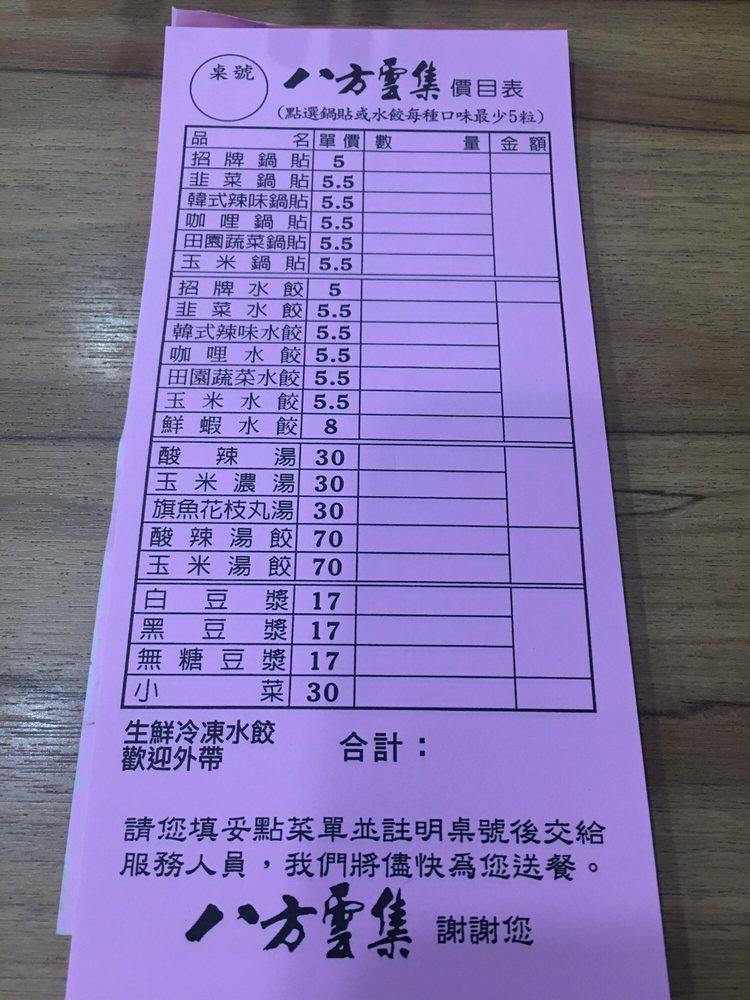 桌號
八方雲集 價目表
(點選鍋貼或水餃每種口味最少5粒)
品名 單價 數量 金額
招牌鍋貼 5
韭菜鍋貼 5.5
韓式辣味鍋貼 5.5
咖哩鍋貼 5.5
田園蔬菜鍋貼 5.5
玉米鍋貼 5.5
招牌水餃 5
韭菜水餃 5.5
韓式辣味水餃 5.5
咖哩水餃 5.5
田園蔬菜水餃 5.5
玉米水餃 5.5
鮮蝦水餃 8
酸辣湯 30
玉米濃湯 30
旗魚花枝丸湯 30
酸辣湯餃 70
玉米湯餃 70
白豆漿 17
黑豆漿 17
無糖豆漿 17
小菜 30
生鮮冷凍水餃
歡迎外帶
合計：
請您填妥點菜單並註明桌號後交給
服務人員，我們將儘快為您送餐。
八方雲集 謝謝您